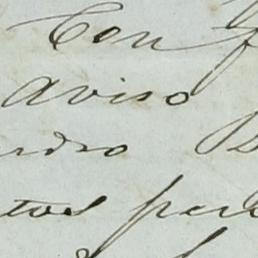 Con f
Aviso
dro B
tos par